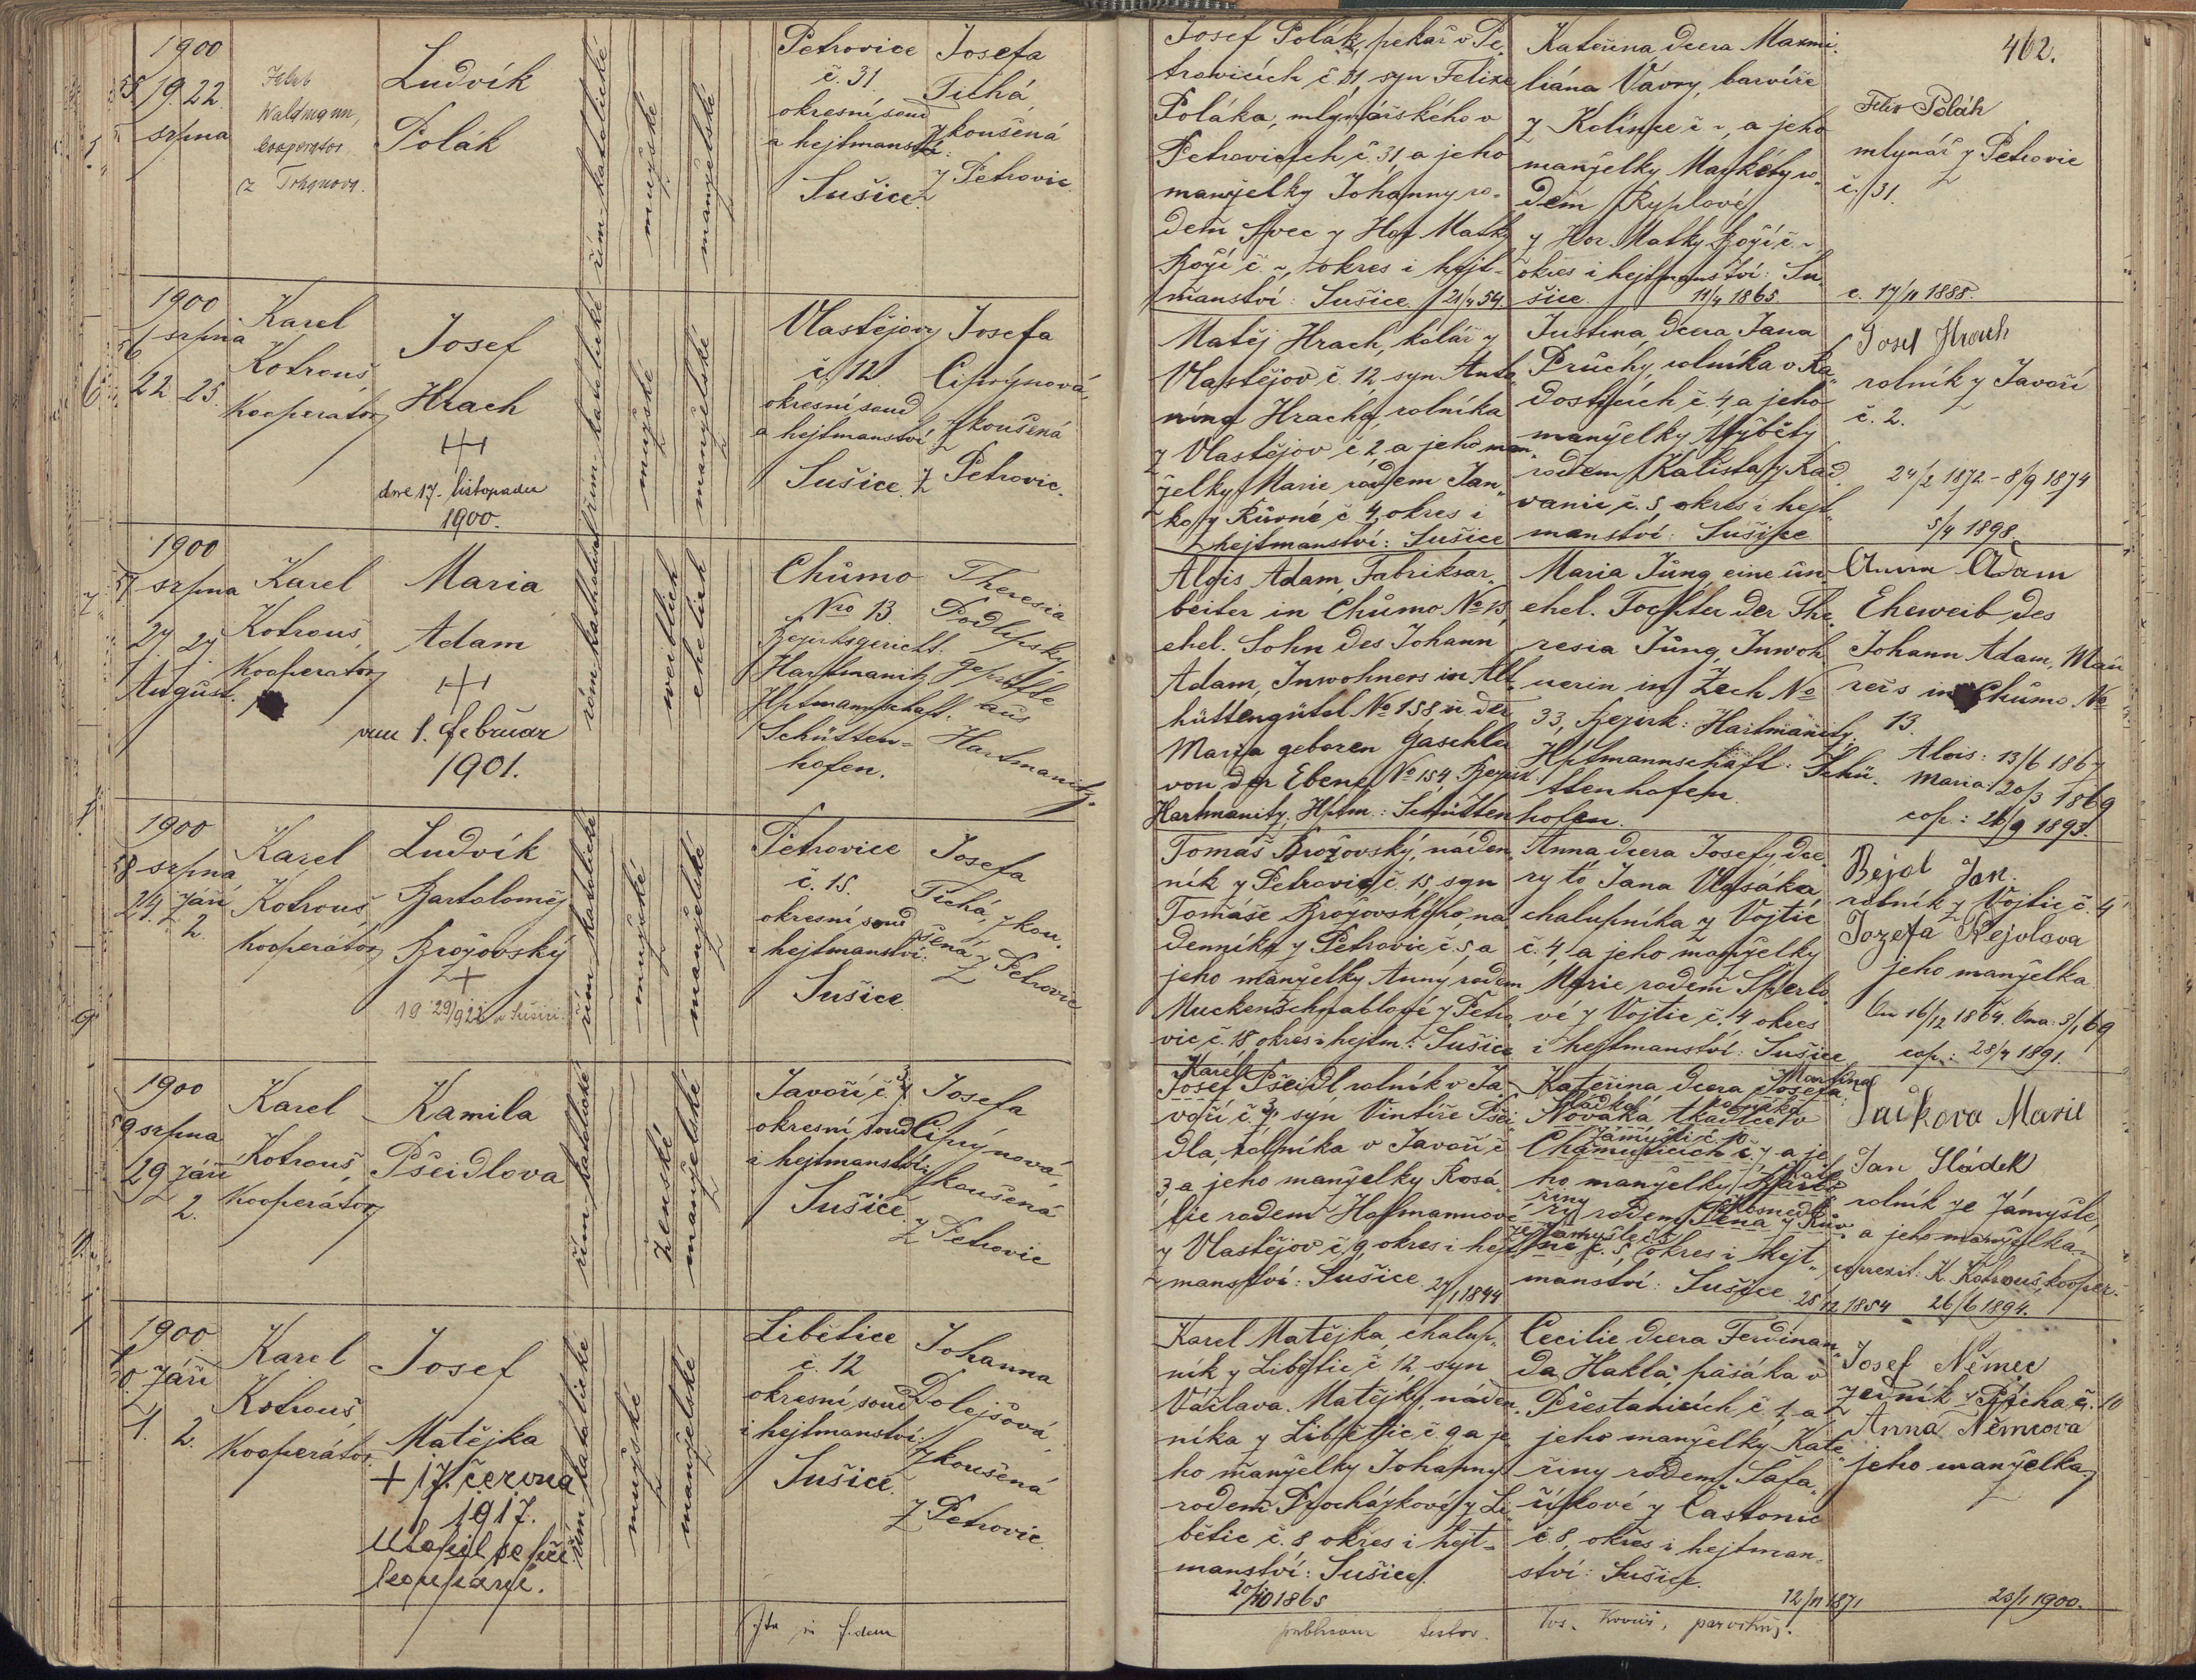 462.
1900
19. 22.
srpna
Waldmann,
Cooperator
Ludvík
Polák
řím. katolické
mužské
manželské
Petrovice
č. 31
okresní soud
a hejtmanství:
Sušice
Josefa
Tichá,
zkoušená
z Petrovic.
Josef Polák, pekař v Pe-
trovicích č. 31, syn Felixe
Poláka, mlynářského v
Petrovicích č. 31 a jeho
manželky Johanny ro-
dem Švec z Hor Matky
Boží č. ~, okres i hejt-
manství: Sušice. 21/4 54.
Kateřina, dcera Maxmi-
liána Vávry, barvíře
z Kolince č. ~, a jeho
manželky Markéty ro-
dem Ryplové
z Hor Matky Boží č. ~
okres i hejtmanství: Su-
šice. 11/4 1865.
Felix Polák
mlynář z Petrovic
č. 31.
c. 17/11 1888.
1900
srpna
22. 25.
Karel
Kotrouš,
kooperator
Josef
Hrach
dne 17. listopadu
1900.
řím. katolické
mužské
manželské
Vlastějov
č. 12
okresní soud
a hejtmanství
Sušice.
Josefa
Ciprýnová,
zkoušená
z Petrovic.
Matěj Hrach, kolář z
Vlastějov č. 12 syn Anto-
nína Hracha, rolníka
z Vlastějov č. 2 a jeho man-
želky Marie rodem Jan-
ko z Růvné č. 4, okres i
hejtmanství: Sušice
Justina, dcera Jana
Průchy, rolníka v Ra-
dostících č. 4 a jeho
manželky Alžběty
rodem Kalista z Kad-
vanic, č. 5, okres i hejt-
manství: Sušice
Josef Hrach
rolník z Javoří
č. 2.
24/2 1872 - 8/9 1874
5/4 1898.
1900
57 srpna
27 27
August.
Karel
Kotrouš,
Kooperator
Maria
Adam
am 1. Februar
1901.
röm. katholisch
weiblich
ehelich
Chůmo
Nro 13.
Bezirksgericht:
Hartmanitz
Hptmannschaft:
Schütten-
hofen.
Theresia
Podlipsky
geprüfte
aus
Hartmanitz.
Alois Adam, Fabriksar-
beiter in Chůmo No 13,
ehel. Sohn des Johann
Adam, Inwohners in Alt-
hüttengütel No 158 u. der
Maria geboren Gaschler
von der Ebene No 154, Bezirk:
Hartmanitz, Hptm.: Schüttenhofen.
Maria Jung, eine un-
ehel. Tochter der The-
resia Jung, Inwoh-
nerin in Zech No
33, Bezirk: Hartmanitz,
Hptmannschaft: Schü-
ttenhofen.
Anna Adam
Eheweib des
Johann Adam, Mau-
rers in Chůmo No
13.
Alois: 13/6 1867
Maria: 20/3 1869
cop.: 26/9 1893.
1900
58 srpna
24. září
2.
Karel
Kotrouš
kooperátor
Ludvík
Bartoloměj
Brožovský
řím. katolické
mužské
manželské
Petrovice
č. 15.
okresní soud
i hejtmanství:
Sušice
Josefa
Tichá, zkou-
šená z
Petrovic
Tomáš Brožovský, náden-
ník z Petrovic č. 15, syn
Tomáše Brožovského, ná-
denníka z Petrovic č. 5, a
jeho manželky Anny rodem
Muckenschnablové z Petro-
vic č. 18 okres i hejtm.: Sušice
Anna, dcera Josefy, dce-
ry to Jana Vlasáka
chalupníka z Vojtic
č. 4, a jeho manželky
Marie rodem Šperlo-
vé z Vojtic č. 4 okres
i hejtmanství: Sušice
Bejol Jan.
rolník z Vojtic č. 4
Jozefa Bejolova
jeho manželka
On 16/12 1864. Ona: 3/1 69
cop.: 28/4 1891.
1900
59 srpna
29 září
2.
Karel
Kotrouš,
Kooperátor
Kamila
Pšeidlova
řím. katolické
ženské
manželské
Javoří č. 3
okresní soud
i hejtmanství:
Sušice
Josefa
Ciprýnová,
zkoušená
z Petrovic
Karel
Josef Pšeidl rolník v Ja-
voří č. 3, syn Vintíře Pšei-
dla, rolníka v Javoří č.
3 a jeho manželky Rosa-
lie rodem Hofmannové
z Vlastějov č. 9. okres i hejt-
manství: Sušice. 27/1 1844
Kateřina, dcera Josefa
Martina
Nováka, tkadlce v
Chamuticích č. 7 a je-
ho manželky
rodem
č. 5, okres i hejt-
manství: Sušice 25/12 1854
Jačkova Marie
Jan Sládek
rolník ze Zámyšle,
a jeho manželka
K. Kotrouš, kooper.
26/6 1894.
1900
září
1. 2.
Karel
Kotrouš,
Kooperátor
Josef
Matějka
+ 17. června
1917.
Utopil se při
koupání.
řím. katolické
mužské
manželské
Libětice
č. 12
okresní soud
i hejtmanství:
Sušice.
Johanna
Dolejšová,
zkoušená
z Petrovic.
Karel Matějka, chalup-
ník z Libětic č. 12, syn
Václava Matějky, náden-
níka z Libětic č. 9 a je-
ho manželky Johanny
rodem Procházkové z Li-
bětic č. 8 okres i hejt-
manství: Sušice.
20/10 1865
Cecilie dcera Ferdinan-
da Hakla, pasáka v
Přestanicích č. 1, a
jeho manželky Kate-
řiny rodem Šafa-
říkové z Častonic
č. 8, okres i hejtman-
ství: Sušice.
12/11 1871
Josef Němec
zedník z Pícha č. 10
Anna Němcova
jeho manželka
23/1 1900.
Ita in fidem
publicam testor.
Jos. Kovář, parochus.